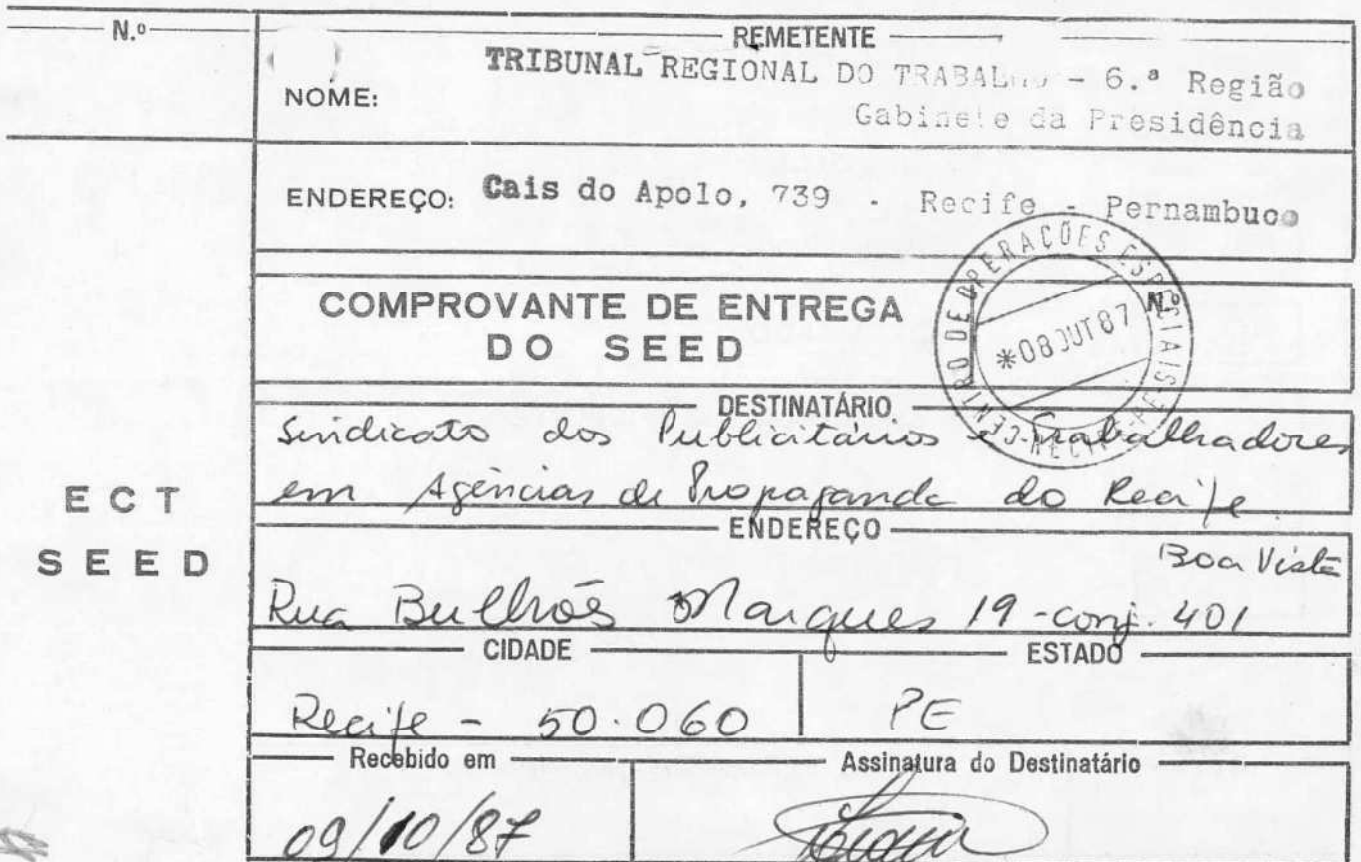 N.º
REMETENTE
NOME: TRIBUNAL REGIONAL DO TRABALHO - 6.ª Região
Gabinete da Presidência
ENDEREÇO: Cais do Apolo, 739 - Recife - Pernambuco
COMPROVANTE DE ENTREGA
DO SEED
N.º
CENTRO DE OPERAÇÕES ESPECIAIS
*08 OUT 87
RECIFE-PE
DESTINATÁRIO
Sindicato dos Publicitários e Trabalhadores
em Agências de Propaganda do Recife.
ECT
SEED
ENDEREÇO
Boa Vista
Rua Bulhões Marques 19 - conj. 401
CIDADE
ESTADO
Recife - 50.060
PE
Recebido em
Assinatura do Destinatário
09/10/87